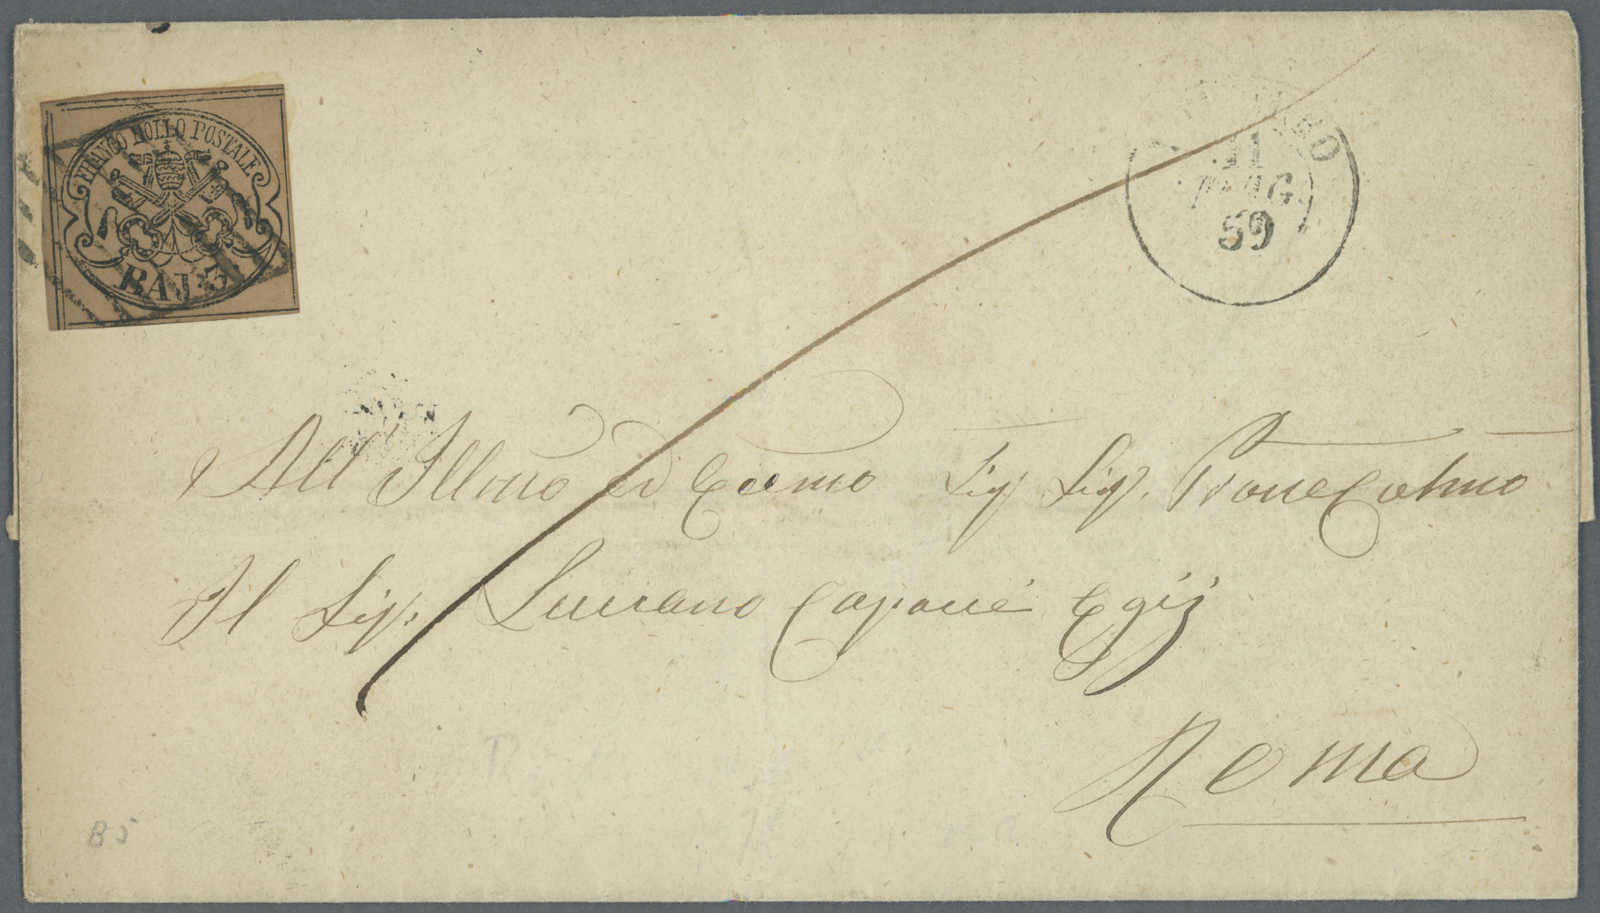 FRANCO BOLLO POSTALE
BAJ. 3
11
MAG
59
All' Illmo ed Eccmo Sig Sig. Prone Colmo
Il Sig. Luciano Capoui Egizj
Roma
B J